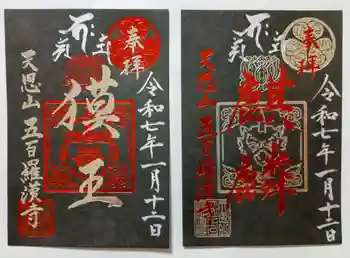 奉拝
獏王
令和七年一月十二日
天恩山 五百羅漢寺
奉拝
麒麟
令和七年一月十二日
天恩山 五百羅漢寺